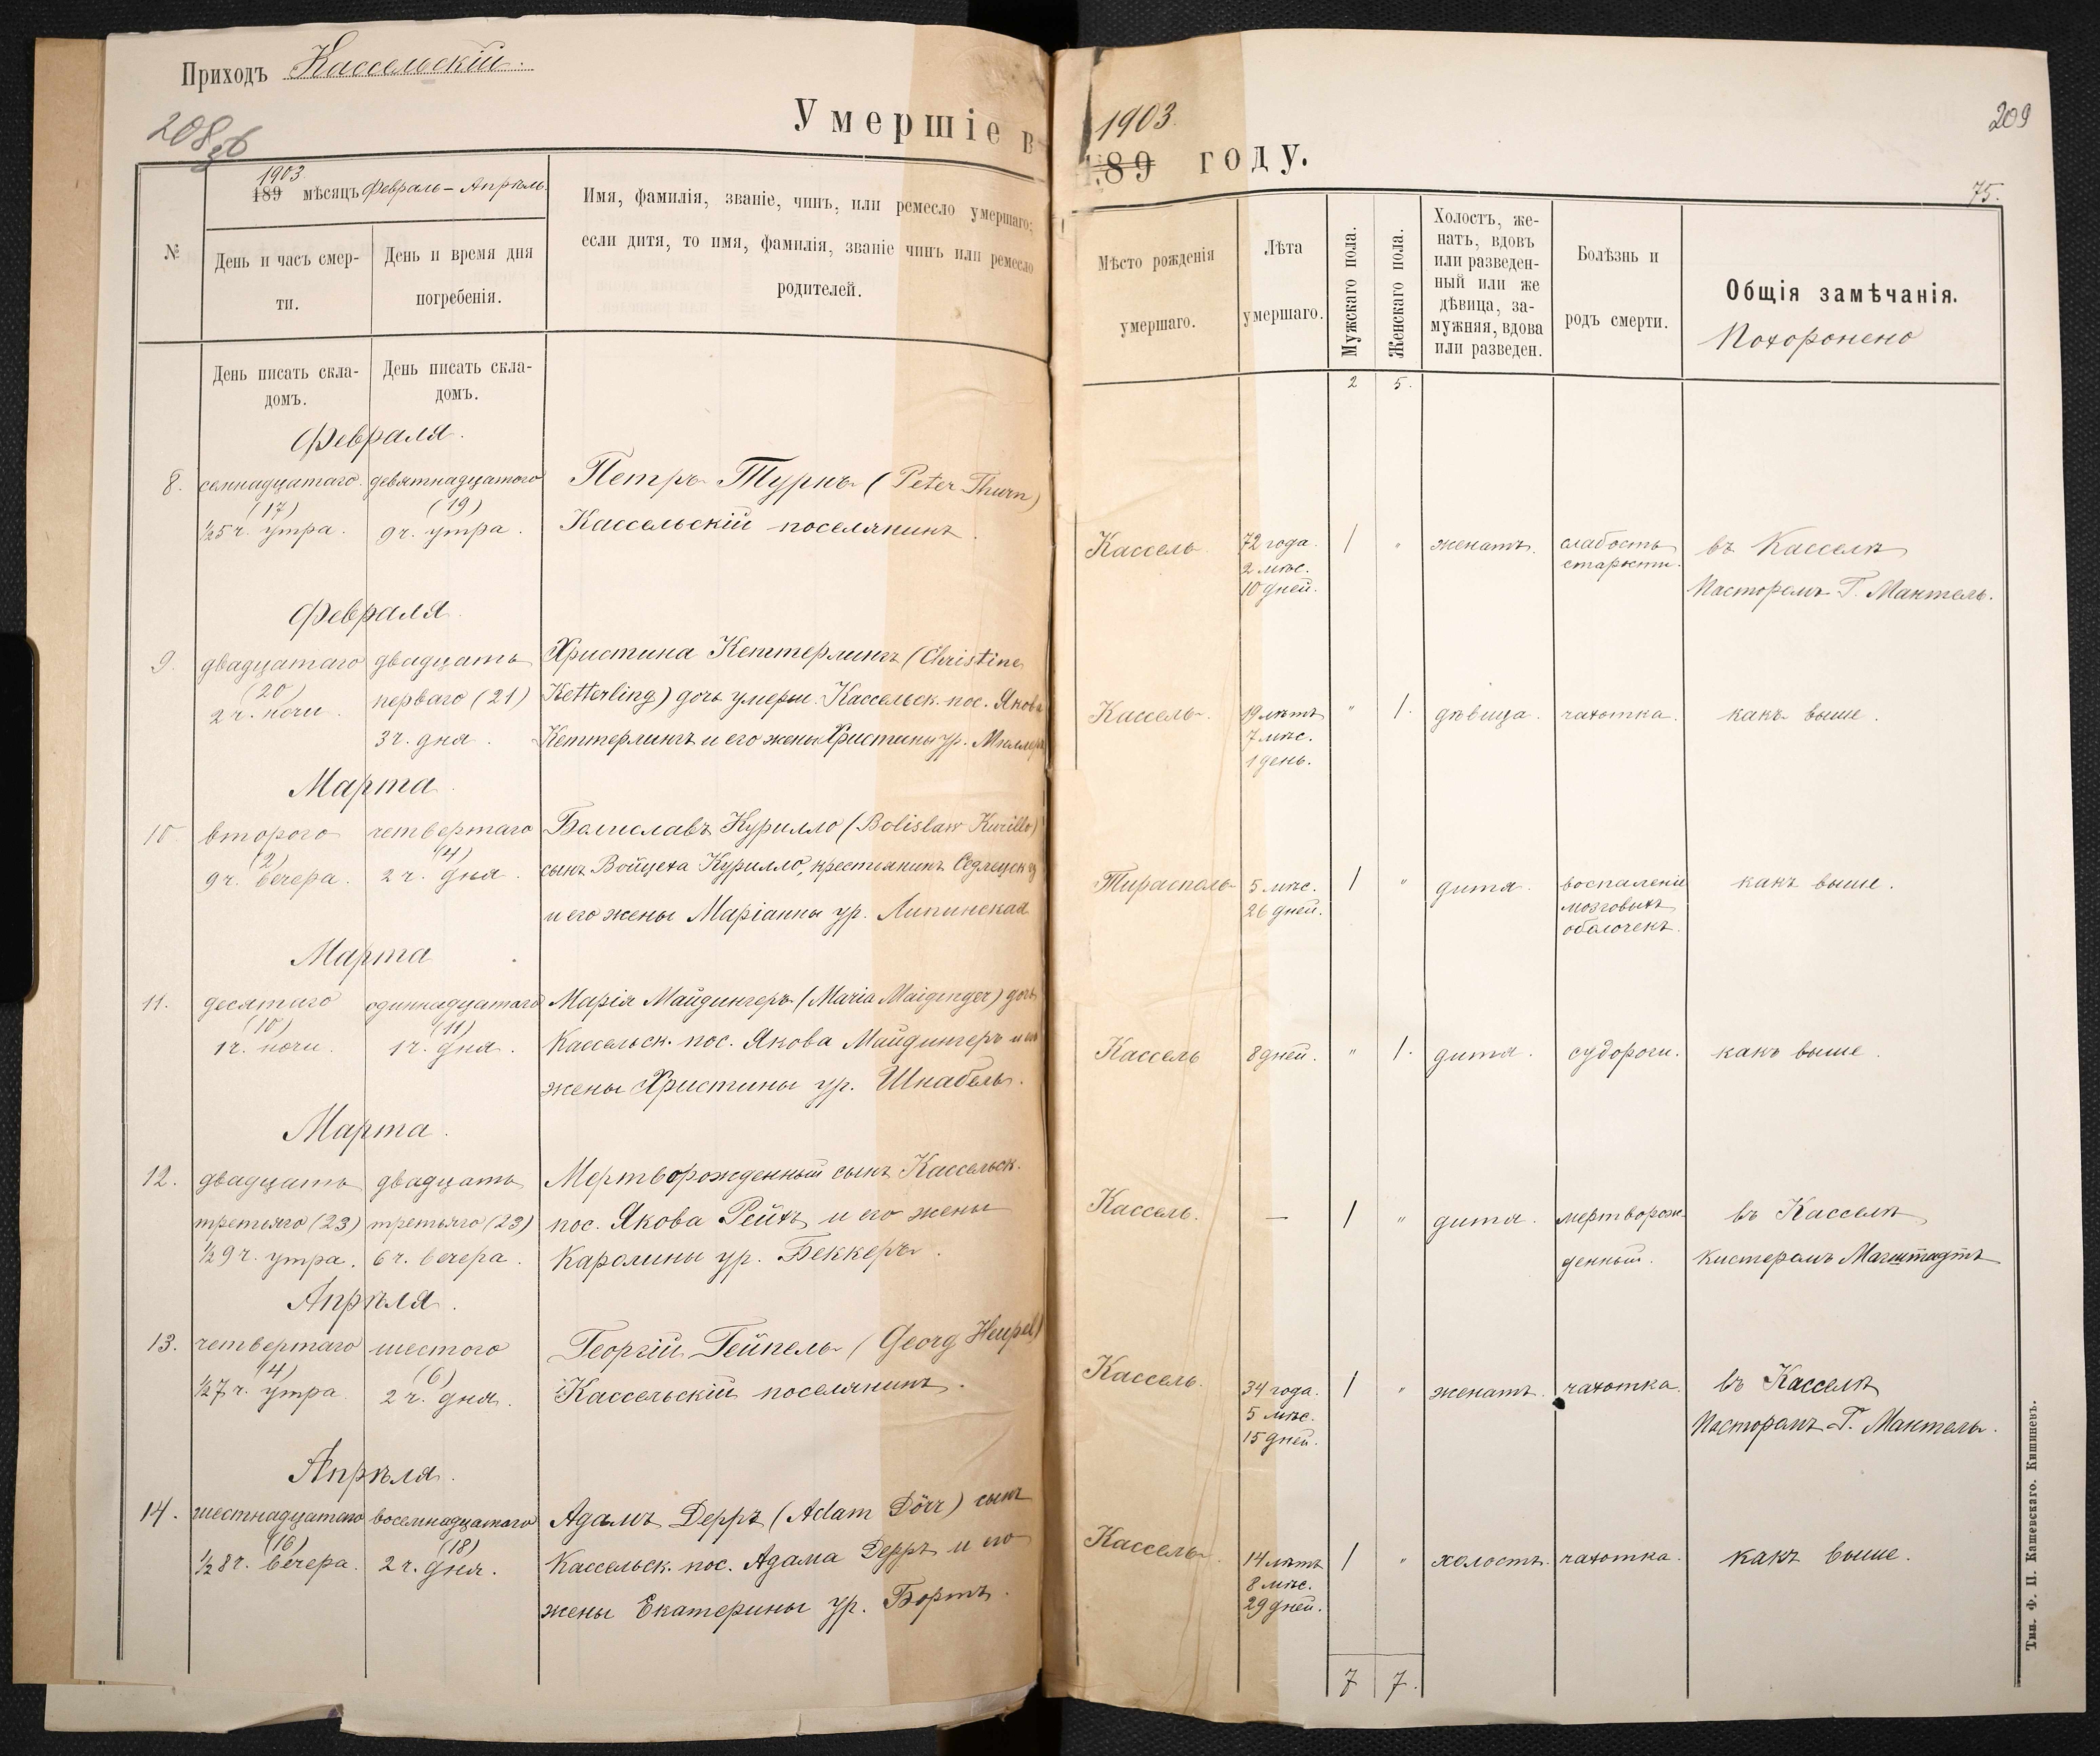 Приходъ Кассельскій.
208 об
Умершіе в
1903
189 мѣсяцъ Февраль – Апрѣль.
№
День и часъ смер-
ти.
День и время дня
погребенія.
Имя, фамилія, званіе, чинъ, или ремесло умершаго;
если дитя, то имя, фамилія, званіе чинъ или ремесло
родителей.
День писать скла-
домъ.
День писать скла-
домъ.
Февраля.
8. семнадцатаго девятнадцатого Петръ Турнъ (Peter Thurn)
(17) (19)
½5 ч. утра. 9 ч. утра. Кассельскій поселянинъ.
Февраля.
9. двадцатаго двадцать Христина Кеттерлингъ (Christine
(20) перваго (21) Ketterling) дочь умерш. Кассельск. пос. Якова
2 ч. ночи. 3 ч. дня. Кеттерлингъ и его жены Христины ур. Мюллеръ
Марта.
10 второго четвертаго Болиславъ Курилло (Bolislaw Kurillo)
(2) (4)
9 ч. вечера. 2 ч. дня. сынъ Войцеха Курилло, крестьянинъ
и его жены Маріанны ур. Липинская
Марта
11. десятаго одиннадцатаго Марія Майдингеръ (Maria Maidinger) дочь
(10) (11)
1 ч. ночи. 1 ч. дня. Кассельск. пос. Якова Майдингеръ и его
жены Христины ур. Шнабель.
Марта.
12. двадцать двадцать Мертворожденный сынъ Кассельск.
третьяго (23) третьяго (23) пос. Якова Рейхъ и его жены
½9 ч. утра. 6 ч. вечера. Каролины ур. Беккеръ.
Апрѣля.
13. четвертаго шестого Георгій Гейпель (Georg Heupel)
(4) (6)
½7 ч. утра 2 ч. дня. Кассельскій поселянинъ.
Апрѣля.
14. шестнадцатаго восемнадцатаго Адамъ Дерръ (Adam Dörr) сынъ
(16) (18)
½8 ч. вечера. 2 ч. дня. Кассельск. пос. Адама Дерръ и его
жены Екатерины ур. Бортъ.
1903.
209
189 году.
75.
Мѣсто рожденія
умершаго.
Лѣта
умершаго.
Мужскаго пола.
Женскаго пола.
Холостъ, же-
натъ, вдовъ
или разведен-
ный или же
дѣвица, за-
мужняя, вдова
или разведен.
Болѣзнь и
родъ смерти.
Общія замѣчанія.
Похоронено
2 5.
Кассель. 72 года. 1 " женатъ. слабость въ Касселѣ
2 мѣс. старости.
10 дней. Пасторомъ Г. Мантель.
Кассель. 19 лѣтъ " 1. дѣвица. чахотка. какъ выше.
7 мѣс.
1 день.
Тирасполь 5 мѣс. 1 " дитя. воспаленіе какъ выше.
26 дней. мозговыхъ
оболочекъ.
Кассель 8 дней. " 1. дитя. судороги. какъ выше.
Кассель. — 1 " дитя. мертворож- въ Касселѣ
денный. Кистеромъ Магштадтъ
Кассель. 34 года. 1 " женатъ. чахотка. въ Касселѣ
5 мѣс.
15 дней. Пасторомъ Г. Мантель.
Кассель. 14 лѣтъ 1 " холостъ. чахотка. какъ выше.
8 мѣс.
29 дней.
7 7.
Тип. Ф. П. Кашевскаго. Кишиневъ.